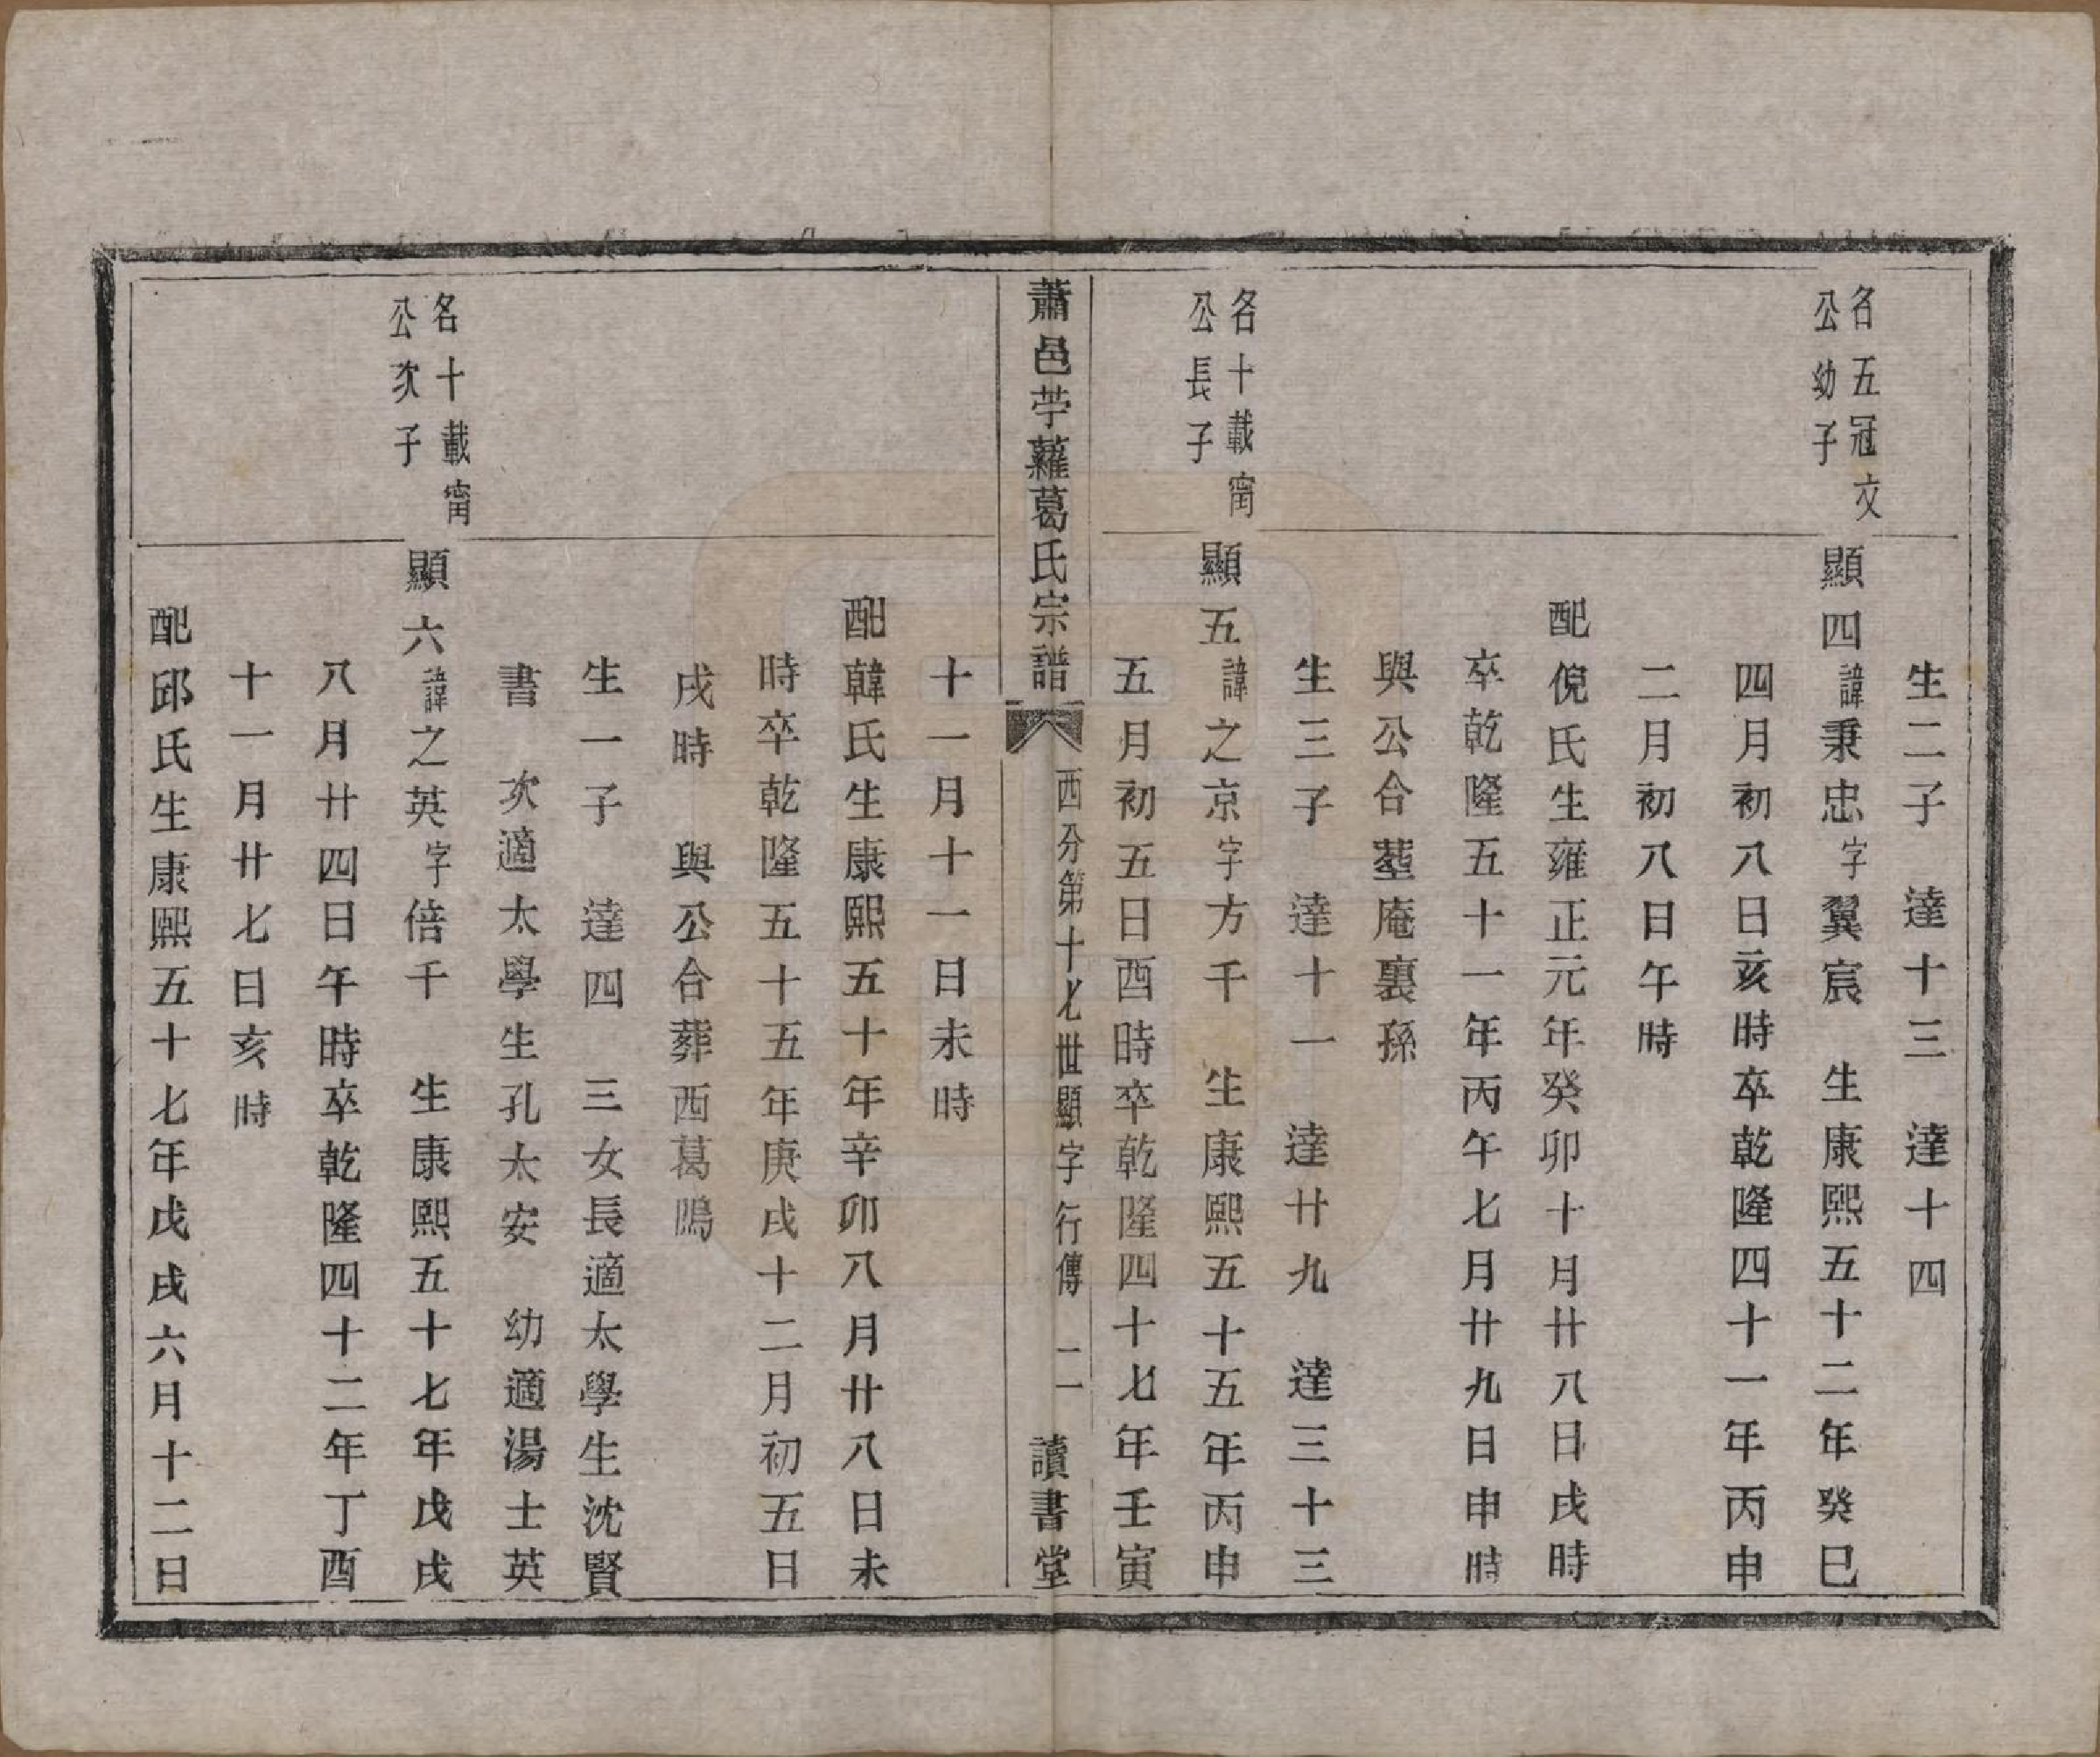 生二子　達十三　達十四
名五冠文
公幼子
顯四諱秉忠字翼宸　生康熙五十二年癸巳
四月初八日亥時卒乾隆四十一年丙申
二月初八日午時
配倪氏生雍正元年癸卯十月廿八日戌時
卒乾隆五十一年丙午七月廿九日申時
與公合墓庵裏孫
生三子　達十一　達廿九　達三十三
名十載甯
公長子
顯五諱之京字方千　生康熙五十五年丙申
五月初五日酉時卒乾隆四十七年壬寅
蕭邑苧蘿葛氏宗譜
西分第十七世顯字行傳　二一
讀書堂
十一月十一日未時
配韓氏生康熙五十年辛卯八月廿八日未
時卒乾隆五十五年庚戌十二月初五日
戌時　與公合葬西葛塢
生一子　達四　三女長適太學生沈賢
書　次適太學生孔太安　幼適湯士英
名十載甯
公次子
顯六諱之英字倍千　生康熙五十七年戊戌
八月廿四日午時卒乾隆四十二年丁酉
十一月廿七日亥時
配邱氏生康熙五十七年戊戌六月十二日